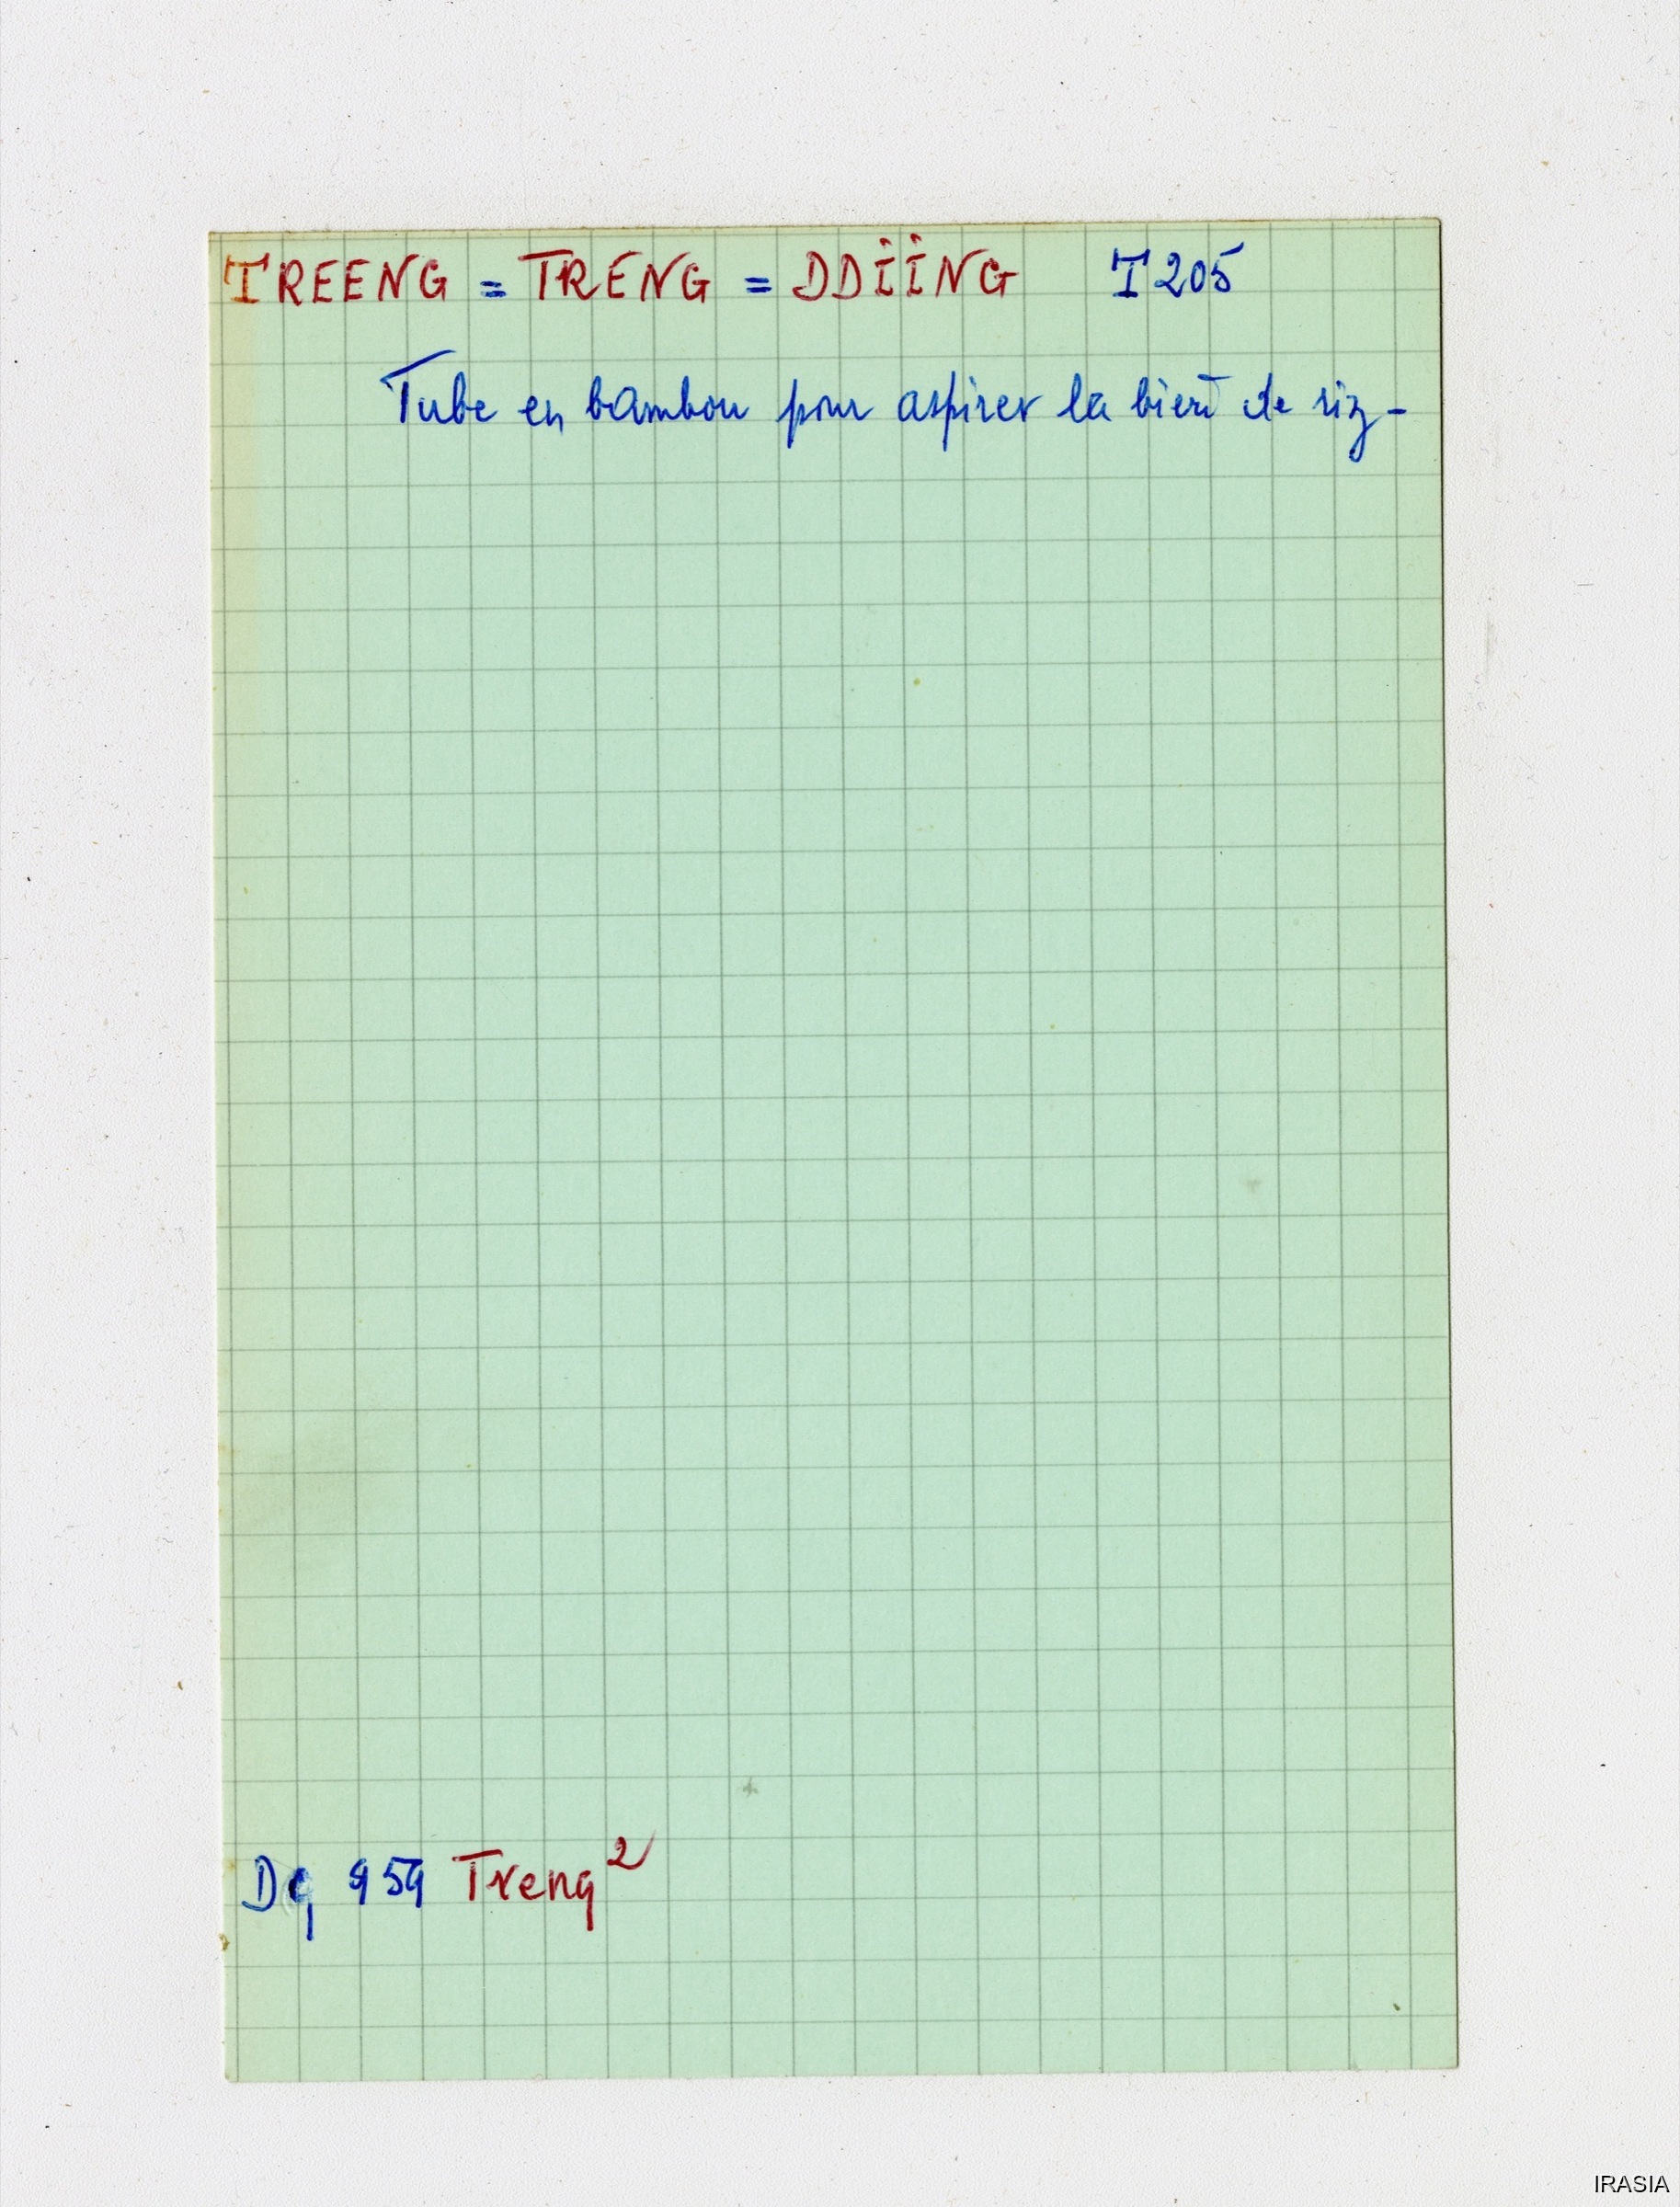 TREENG = TRENG = DDÏÏNG T205
Tube en bambou pour aspirer la bière de riz -
Dg 959 Treng²
IRASIA